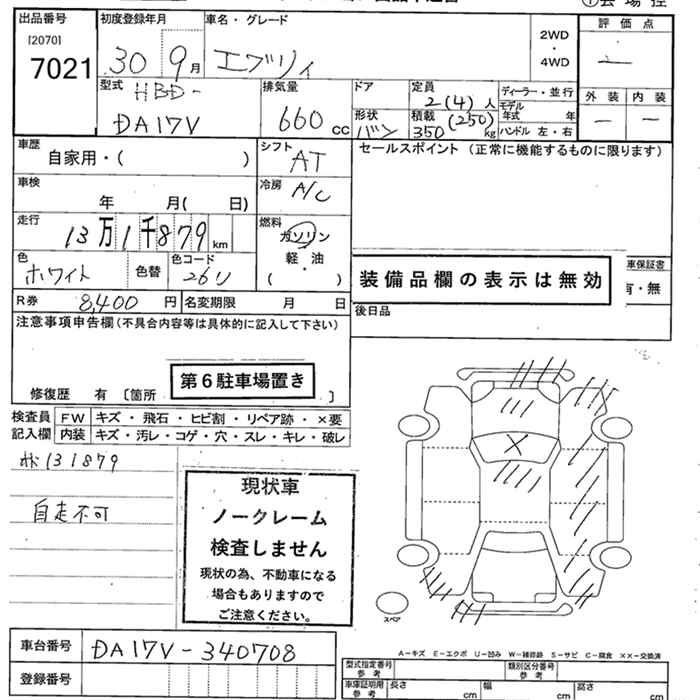 出品番号 初度登録年月 車名・グレード 評価点
[2070] 7021 30 9月 エブリィ 2WD・4WD
外装 内装
型式 HBD- DA17V 排気量 660 cc ドア 形状 バン 定員 2(4)人 積載 350(250)kg
ディーラー・並行
モデル年式 年
ハンドル 左・右
車歴 自家用・( ) シフト AT セールスポイント(正常に機能するものに限ります)
車検 年 月( 日) 冷房 A/C
走行 13万1千879km 燃料 ガソリン 軽・油 ( )
色 ホワイト 色替 色コード 26U
装備品欄の表示は無効
車保証書 有・無
R券 8,400円 名変期限 月 日 後日品
注意事項申告欄(不具合内容等は具体的に記入して下さい)
第6駐車場置き
修復歴 有 〔箇所 〕
検査員記入欄 FW キズ・飛石・ヒビ割・リペア跡・×要
内装 キズ・汚レ・コゲ・穴・スレ・キレ・破レ
131879
自走不可
現状車
ノークレーム
検査しません
現状の為、不動車になる
場合もありますので
ご注意ください。
スペア
車台番号 DA17V-340708
登録番号
A-キズ E-エクボ U-凹み W-補修跡 S-サビ C-腐食 XX-交換済
型式指定番号 参考 類別区分番号 参考
車庫証明用 参考 長さ cm 幅 cm 高さ cm